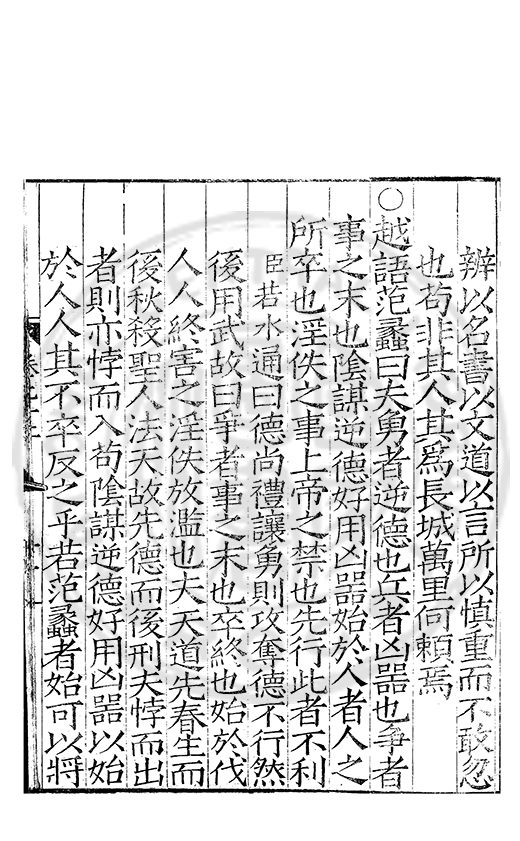 辨以名書以文道以言所以慎重而不敢忽
也苟非其人其爲長城萬里何賴焉
○越語范蠡曰夫勇者逆德也兵者凶器也爭者
事之末也陰謀逆德好用凶器始於人者人之
所卒也淫佚之事上帝之禁也先行此者不利
臣若水通曰德尚禮讓勇則攻奪德不行然
後用武故曰爭者事之末也卒終也始於伐
人人終害之淫佚放濫也夫天道先春生而
後秋殺聖人法天故先德而後刑夫悖而出
者則亦悖而入苟陰謀逆德好用凶器以始
於人人其不卒反之乎若范蠡者始可以將